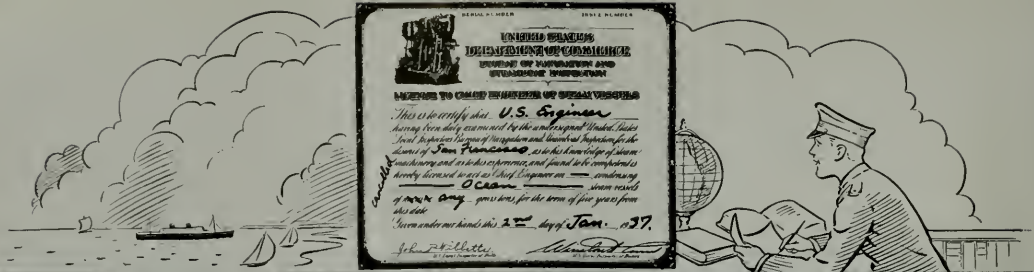 SERIAL NUMBER ISSUE NUMBER
UNITED STATES
DEPARTMENT OF COMMERCE
BUREAU OF NAVIGATION AND
STEAMBOAT INSPECTION
LICENSE TO CHIEF ENGINEER OF STEAM VESSELS
This is to certify that U.S. Engineer
having been duly examined by the undersigned United States
Local Inspectors Bureau of Navigation and Steamboat Inspection for the
district of San Francisco, as to his knowledge of steam
machinery and as to his experience, and found to be competent is
hereby licensed to act as Chief Engineer on — condensing
Ocean steam vessels
of xxx any gross tons, for the term of five years from
this date.
Given under our hands this 2nd day of Jan. 1937.
cancelled
John